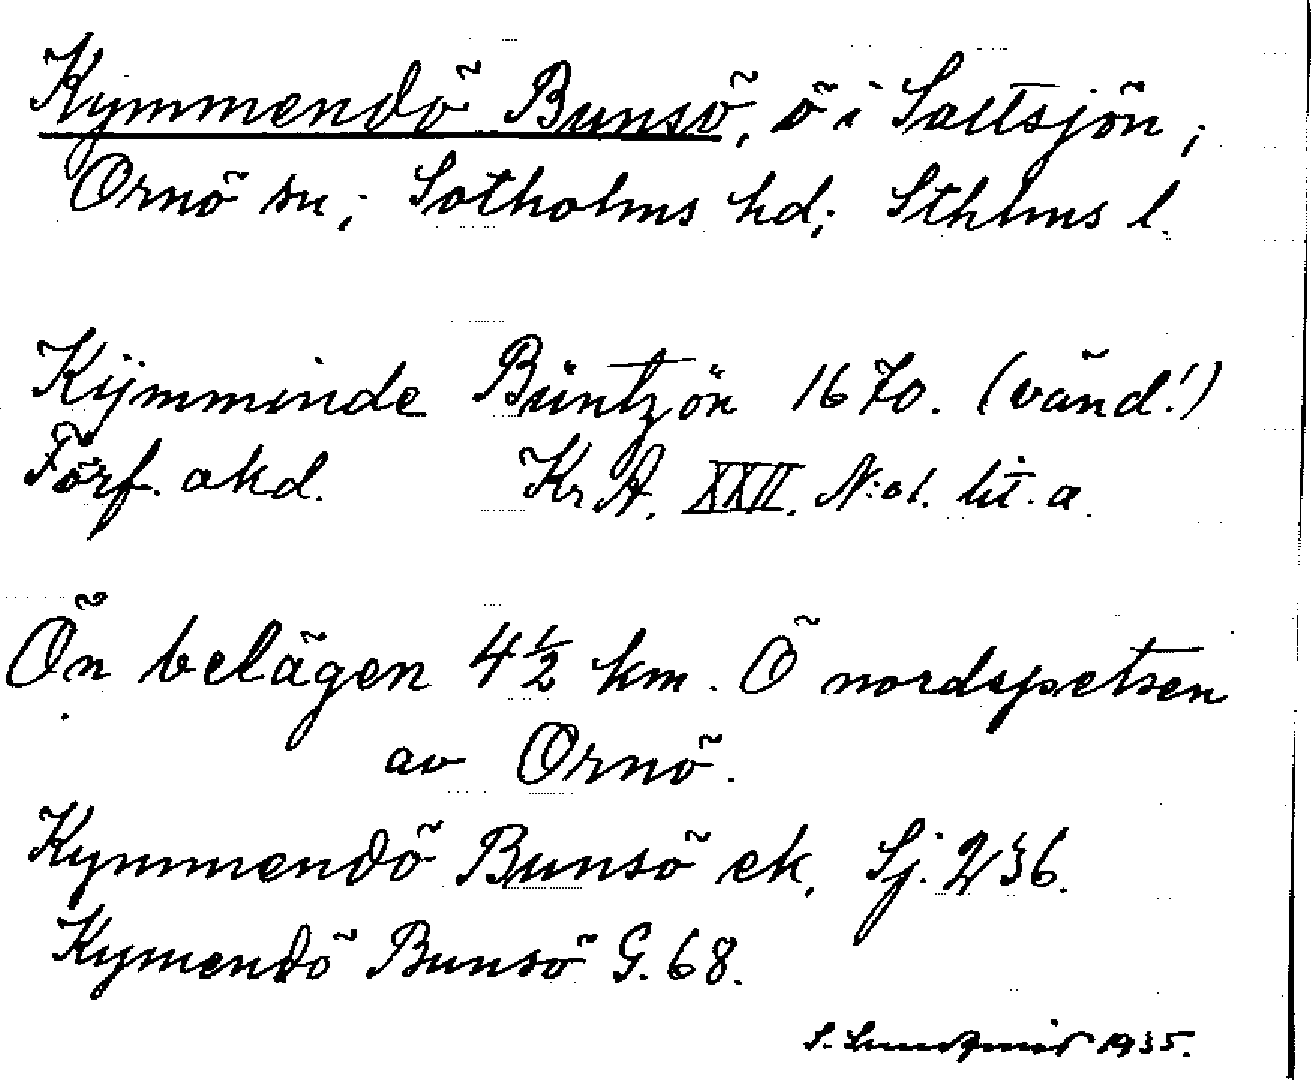 Kymmendö Bunsö, ö i Saltsjön;
Ornö sn; Sotholms hd; Sthlms l.
Kijmminde Büntzön 1670. (vänd!)
Förf. akd. KrA. XXII. N:o1. lit. a.
Ön belägen 4 1/2 km. Ö nordspetsen
av Ornö.
Kymmendö Bunsö ek. Sj. 236.
Kymendö Bunsö G. 68.
S. Lundqvist 1935.